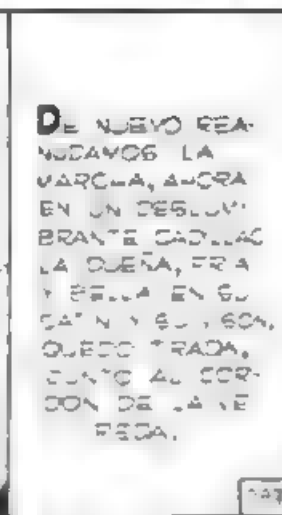 DE NUEVO REA-
NUDAMOS LA
MARCHA, AHORA
EN UN DESLUM-
BRANTE CADILLAC
LA DUEÑA, FRIA
Y BELLA EN SU
SATIN Y SU VISON,
QUEDO TIRADA,
JUNTO AL COR-
DON DE LA VE
REDA.